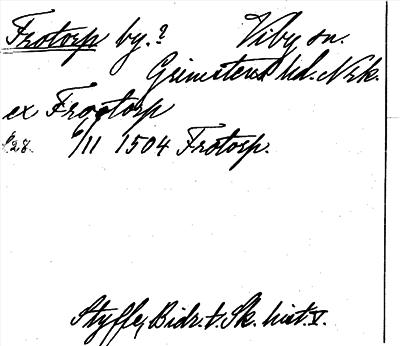 Frotorp by.? Viby sn.
Grimstens hd. Nrk.
ex Frogtorp
s. 28. 6/11 1504 Frotorp.
Styffe, Bidr. t. Sk. hist. V.